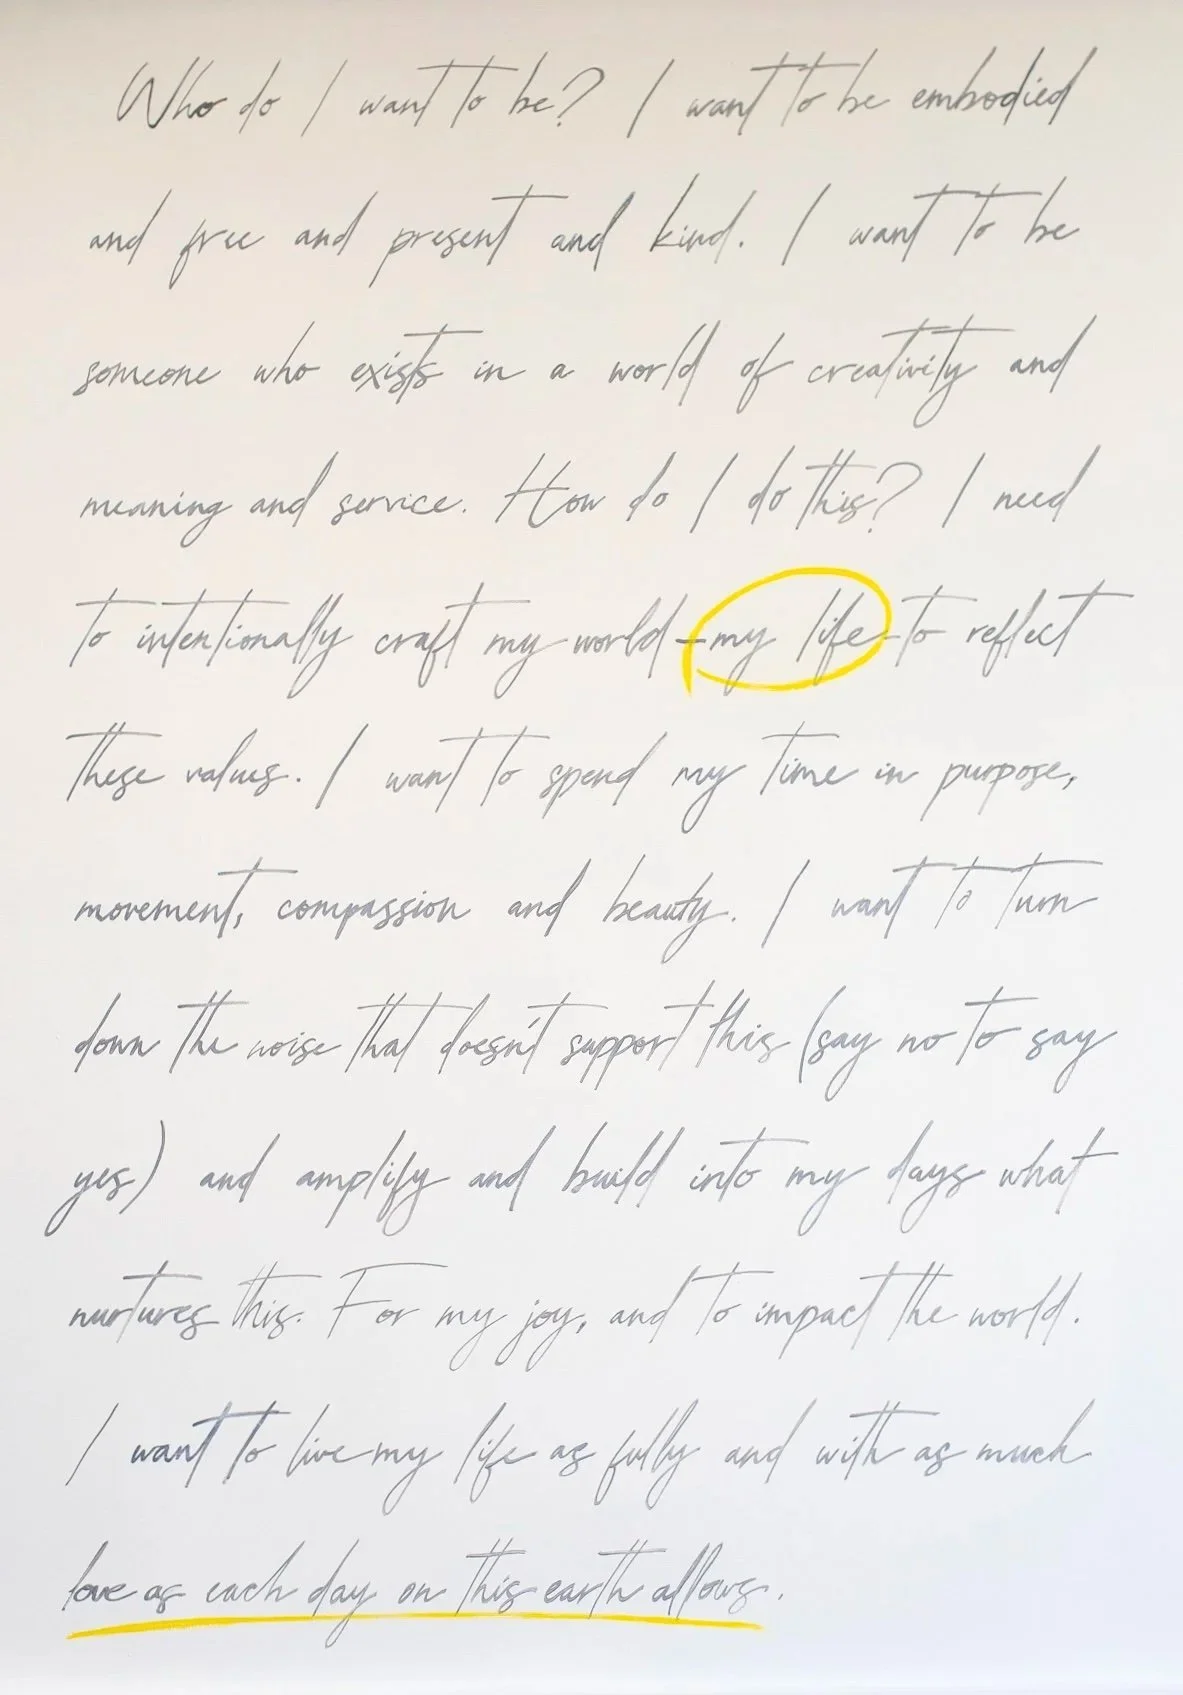 Who do I want to be? I want to be embodied
and free and present and kind. I want to be
someone who exists in a world of creativity and
meaning and service. How do I do this? I need
to intentionally craft my world-my life-to reflect
these values. I want to spend my time in purpose,
movement, compassion and beauty. I want to turn
down the noise that doesn't support this (say no to say
yes) and amplify and build into my days what
nurtures this. For my joy, and to impact the world.
I want to live my life as fully and with as much
love as each day on this earth allows.